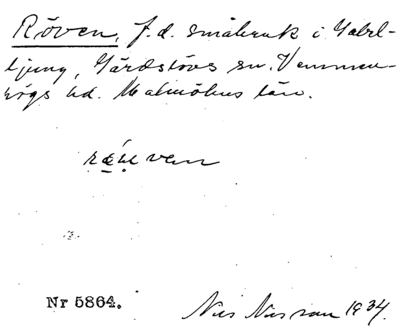 Röven, f.d. småbruk i Gabel-
ljung, Gärdslövs sn. Vemmen-
högs hd. Malmöhus län.
Nr 5864.
Nils Nilsson 1934.